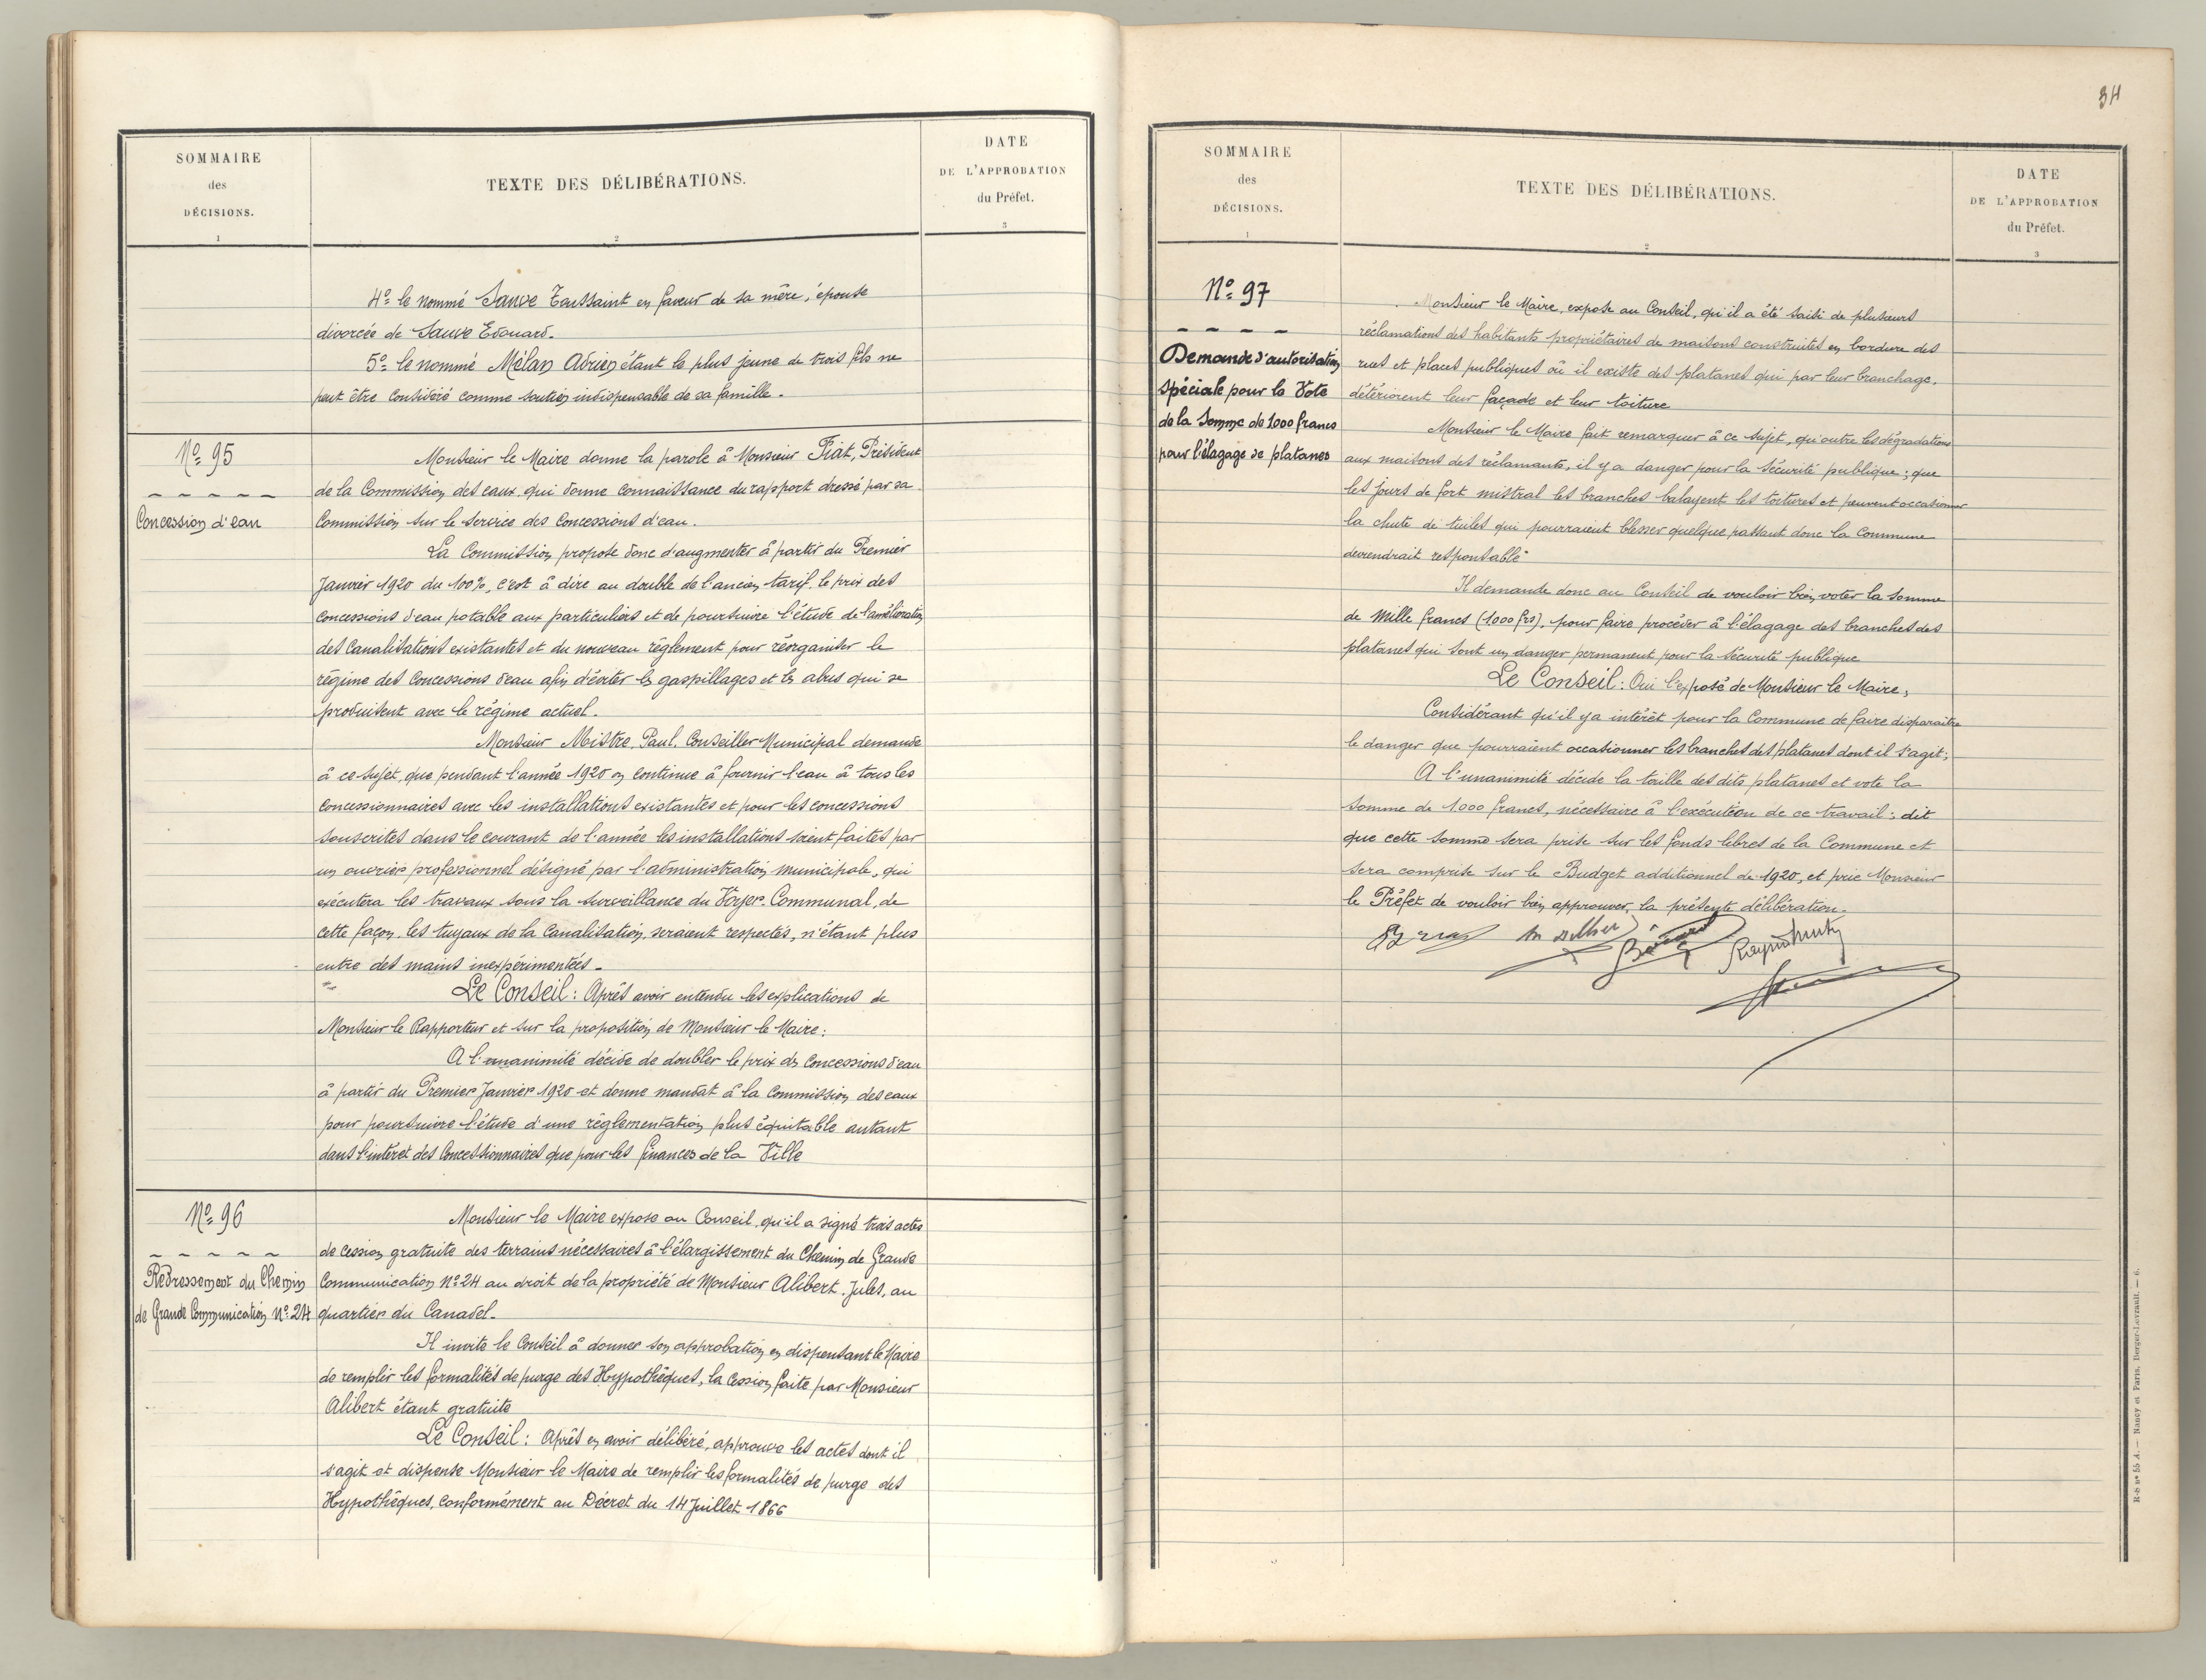 SOMMAIRE
des
DÉCISIONS.
1
TEXTE DES DÉLIBÉRATIONS.
2
DATE
DE L'APPROBATION
du Préfet.
3
4º le nommé Sauve Toussaint en faveur de sa mère, épouse
divorcée de Sauve Edouard.
5º le nommé Mélan Adrien étant le plus jeune de trois fils ne
peut être considéré comme soutien indispensable de sa famille.
Nº 95
Concession d'eau
Monsieur le Maire donne la parole à Monsieur Fiat, Président
de la Commission des eaux qui donne connaissance du rapport dressé par sa
Commission sur le service des Concessions d'eau.
La Commission propose donc d'augmenter à partir du Premier
Janvier 1920 du 100%, c'est à dire au double de l'ancien tarif le prix des
concessions d'eau potable aux particuliers et de poursuivre l'étude de l'amélioration
des Canalisations existantes et du nouveau règlement pour réorganiser le
régime des Concessions d'eau afin d'éviter les gaspillages et les abus qui se
produisent avec le régime actuel.
Monsieur Mistre, Paul, Conseiller Municipal demande
à ce sujet, que pendant l'année 1920 on continue à fournir l'eau à tous les
concessionnaires avec les installations existantes et pour les concessions
souscrites dans le courant de l'année les installations soient faites par
un ouvrier professionnel désigné par l'administration municipale, qui
exécutera les travaux sous la surveillance du Voyer-Communal, de
cette façon, les tuyaux de la Canalisation, seraient respectés, n'étant plus
entre des mains inexpérimentées.
Le Conseil: Après avoir entendu les explications de
Monsieur le Rapporteur et sur la proposition de Monsieur le Maire:
A l'unanimité décide de doubler le prix des Concessions d'eau
à partir du Premier Janvier 1920 et donne mandat à la Commission des eaux
pour poursuivre l'étude d'une règlementation plus équitable autant
dans l'intéret des Concessionnaires que pour les finances de la Ville
Nº 96
Redressement du Chemin
de Grande Communication Nº 24
Monsieur le Maire expose au Conseil, qu'il a signé trois actes
de cession gratuite des terrains nécessaires à l'élargissement du Chemin de Grande
Communication Nº 24 au droit de la propriété de Monsieur Alibert, Jules, au
quartier du Canadel.
Il invite le Conseil à donner son approbation en dispensant le Maire
de remplir les formalités de purge des Hypothèques, la Cession faite par Monsieur
Alibert étant gratuite
Le Conseil: Après en avoir délibéré, approuve les actes dont il
s'agit et dispense Monsieur le Maire de remplir les formalités de purge des
Hypothèques, conformément au Décret du 14 Juillet 1866
34
SOMMAIRE
des
DÉCISIONS.
1
TEXTE DES DÉLIBÉRATIONS.
2
DATE
DE L'APPROBATION
du Préfet.
3
Nº 97
Demande d'autorisation
spéciale pour le Vote
de la Somme de 1000 francs
pour l'élagage de platanes
Monsieur le Maire, expose au Conseil, qu'il a été saisi de plusieurs
réclamations des habitants propriétaires de maisons construites en bordure des
rues et places publiques où il existe des platanes qui par leur branchage,
détériorent leur façade et leur toiture
Monsieur le Maire fait remarquer à ce sujet, qu'outre les dégradations
aux maisons des réclamants, il y a danger pour la sécurité publique; que
les jours de fort mistral les branches balayent les toitures et peuvent occasionner
la chute de tuiles qui pourraient blesser quelque passant donc la Commune
deviendrait responsable
Il demande donc au Conseil de vouloir bien voter la somme
de mille francs (1000 frs), pour faire procéder à l'élagage des branches des
platanes qui sont un danger permanent pour la sécurité publique
Le Conseil: Oui l'exposé de Monsieur le Maire;
Considérant qu'il y a intérêt pour la Commune de faire disparaître
le danger que pourraient occasionner les branches des platanes dont il s'agit;
A l'unanimité décide la taille des dits platanes et vote la
somme de 1.000 francs, nécessaire à l'exécution de ce travail; dit
que cette somme sera prise sur les fonds libres de la Commune et
sera comprise sur le Budget additionnel de 1920, et prie Monsieur
le Préfet de vouloir bien approuver, la présente délibération.
R-S nº 55 A. — Nancy et Paris, Berger-Levrault. — 6.